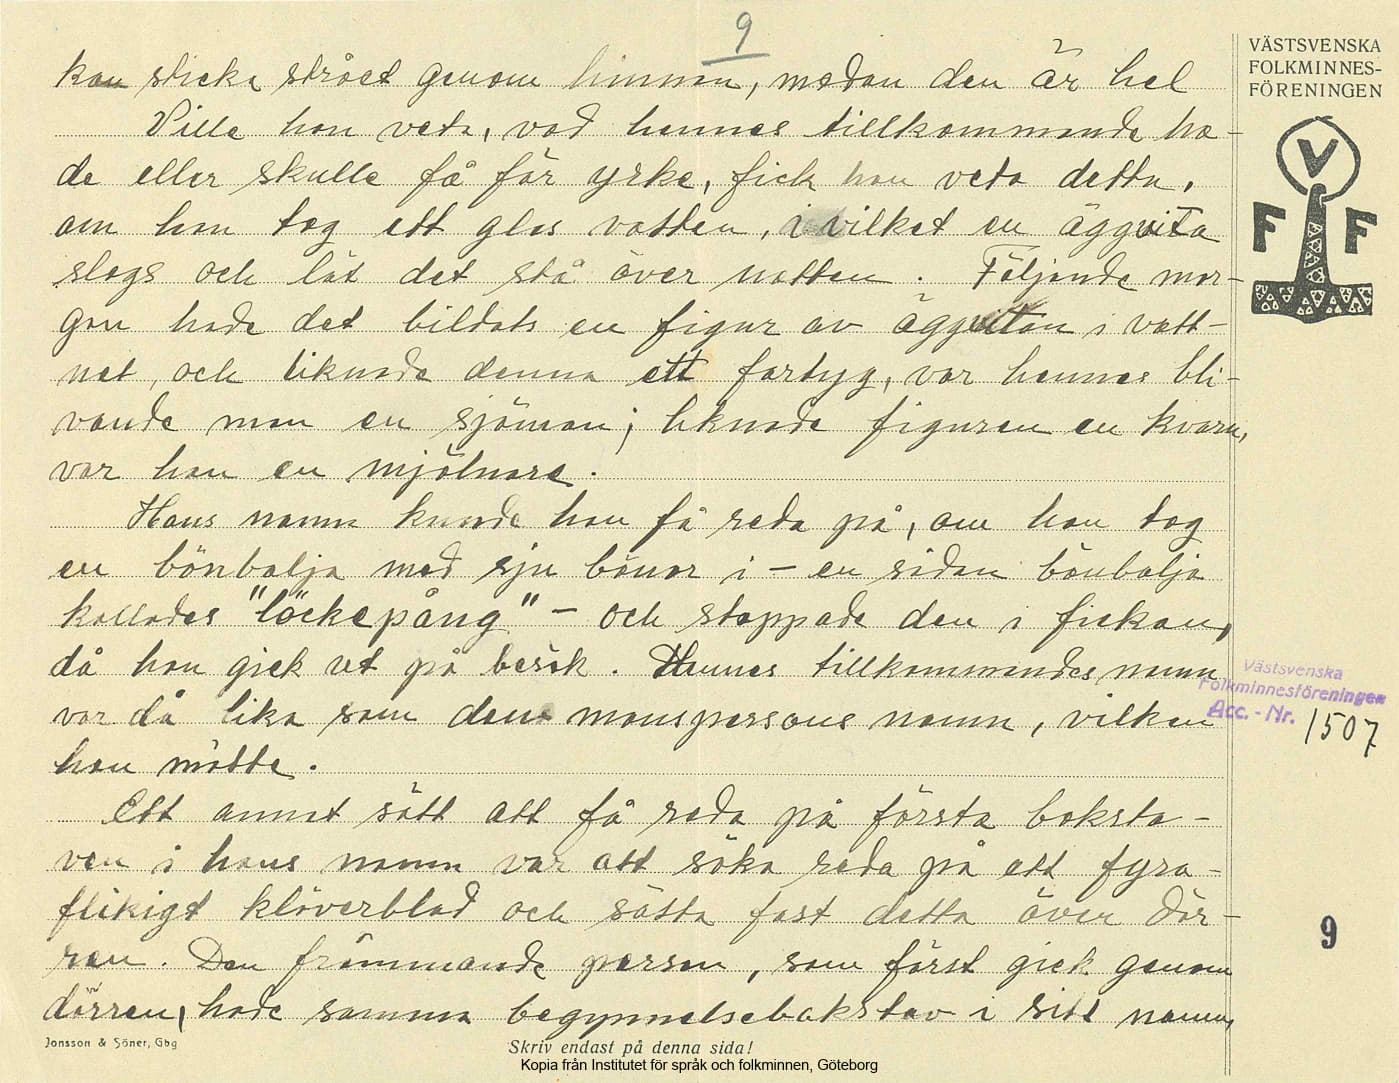 9
kan sticka strået genom hinnan, medan den är hel
Ville hon veta, vad hennes tillkommande ha-
de eller skulle få för yrke, fick hon veta detta,
om hon tog ett glas vatten, i vilket en äggvita
slogs och lät det stå över natten. Följande mor-
gon hade det bildats en figur av äggvitan i vatt-
net, och liknade denna ett fartyg, var hennes bli-
vande man en sjöman; liknade figuren en kvarn,
var han en mjölnare.
Hans namn kunde hon få reda på, om hon tog
en bönbalja med sju bönor i – en sådan bönbalja
kallades "löckepång" – och stoppade den i fickan,
då hon gick ut på besök. Hennes tillkommandes namn
var då lika som den manspersons namn, vilken
hon mötte.
Ett annat sätt att få reda på förstaboksta-
ven i hans namn var att söka reda på ett fyra-
flikigt klöverblad och sätta fast detta över dör-
ren. Den främmande person, som först gick genom
dörren, hade samma begynnelsebokstav i sitt namn,
VÄSTSVENSKA
FOLKMINNES-
FÖRENINGEN
V
F F
Västsvenska
Folkminnesföreningen
Acc. - Nr. 1507
9
Jonsson & Söner, Gbg
Skriv endast på denna sida!
Kopia från Institutet för språk och folkminnen, Göteborg